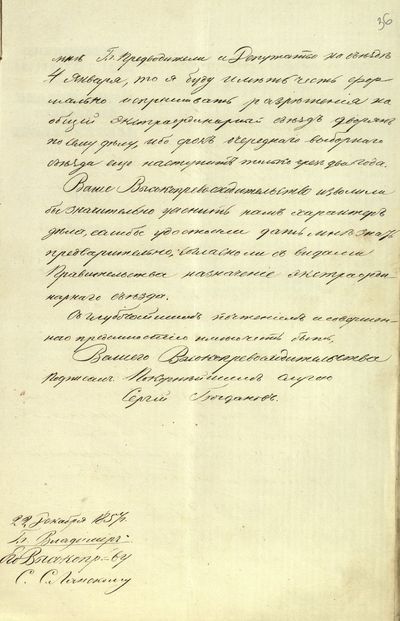 36
мнѣ Гг. Предводители и Депутаты на съѣздѣ
4 Января, то я буду имѣть честь фор-
мально испрашивать разрѣшенія на
общій экстраординарный съѣздъ дворянъ
по сему дѣлу, ибо срокъ очереднаго выборнаго
съѣзда еще наступитъ только чрезъ два года.
Ваше Высокопревосходительство изволили
бы значительно уяснить намъ характеръ
дѣла, если бы удостоили дать мнѣ знать
предварительно, согласно ли съ видами
Правительства назначеніе экстраорди-
нарнаго съѣзда.
Съ глубочайшимъ почтеніемъ и совершен-
ною преданностію имѣю честь быть
Вашего Высокопревосходительства
Подписалъ Покорнѣйшимъ слугою
Сергѣй Богдановъ.
22 Декабря 1857 г.
Г. Владиміръ.
Его Высокопр-ву
С. С. Ланскому